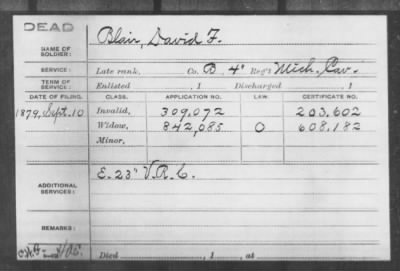 DEAD
NAME OF SOLDIER: Blair, David F.
SERVICE: Late rank, Co. B. 4" Reg't Mich. Cav.
TERM OF SERVICE: Enlisted , 1 Discharged , 1
DATE OF FILING. CLASS. APPLICATION NO. LAW. CERTIFICATE NO.
1879, Sept. 10 Invalid, 309,072 203,602
Widow, 842,085 O 608,182
Minor,
ADDITIONAL SERVICES: E. 23" V.R.C.
REMARKS:
Died , 1 , at